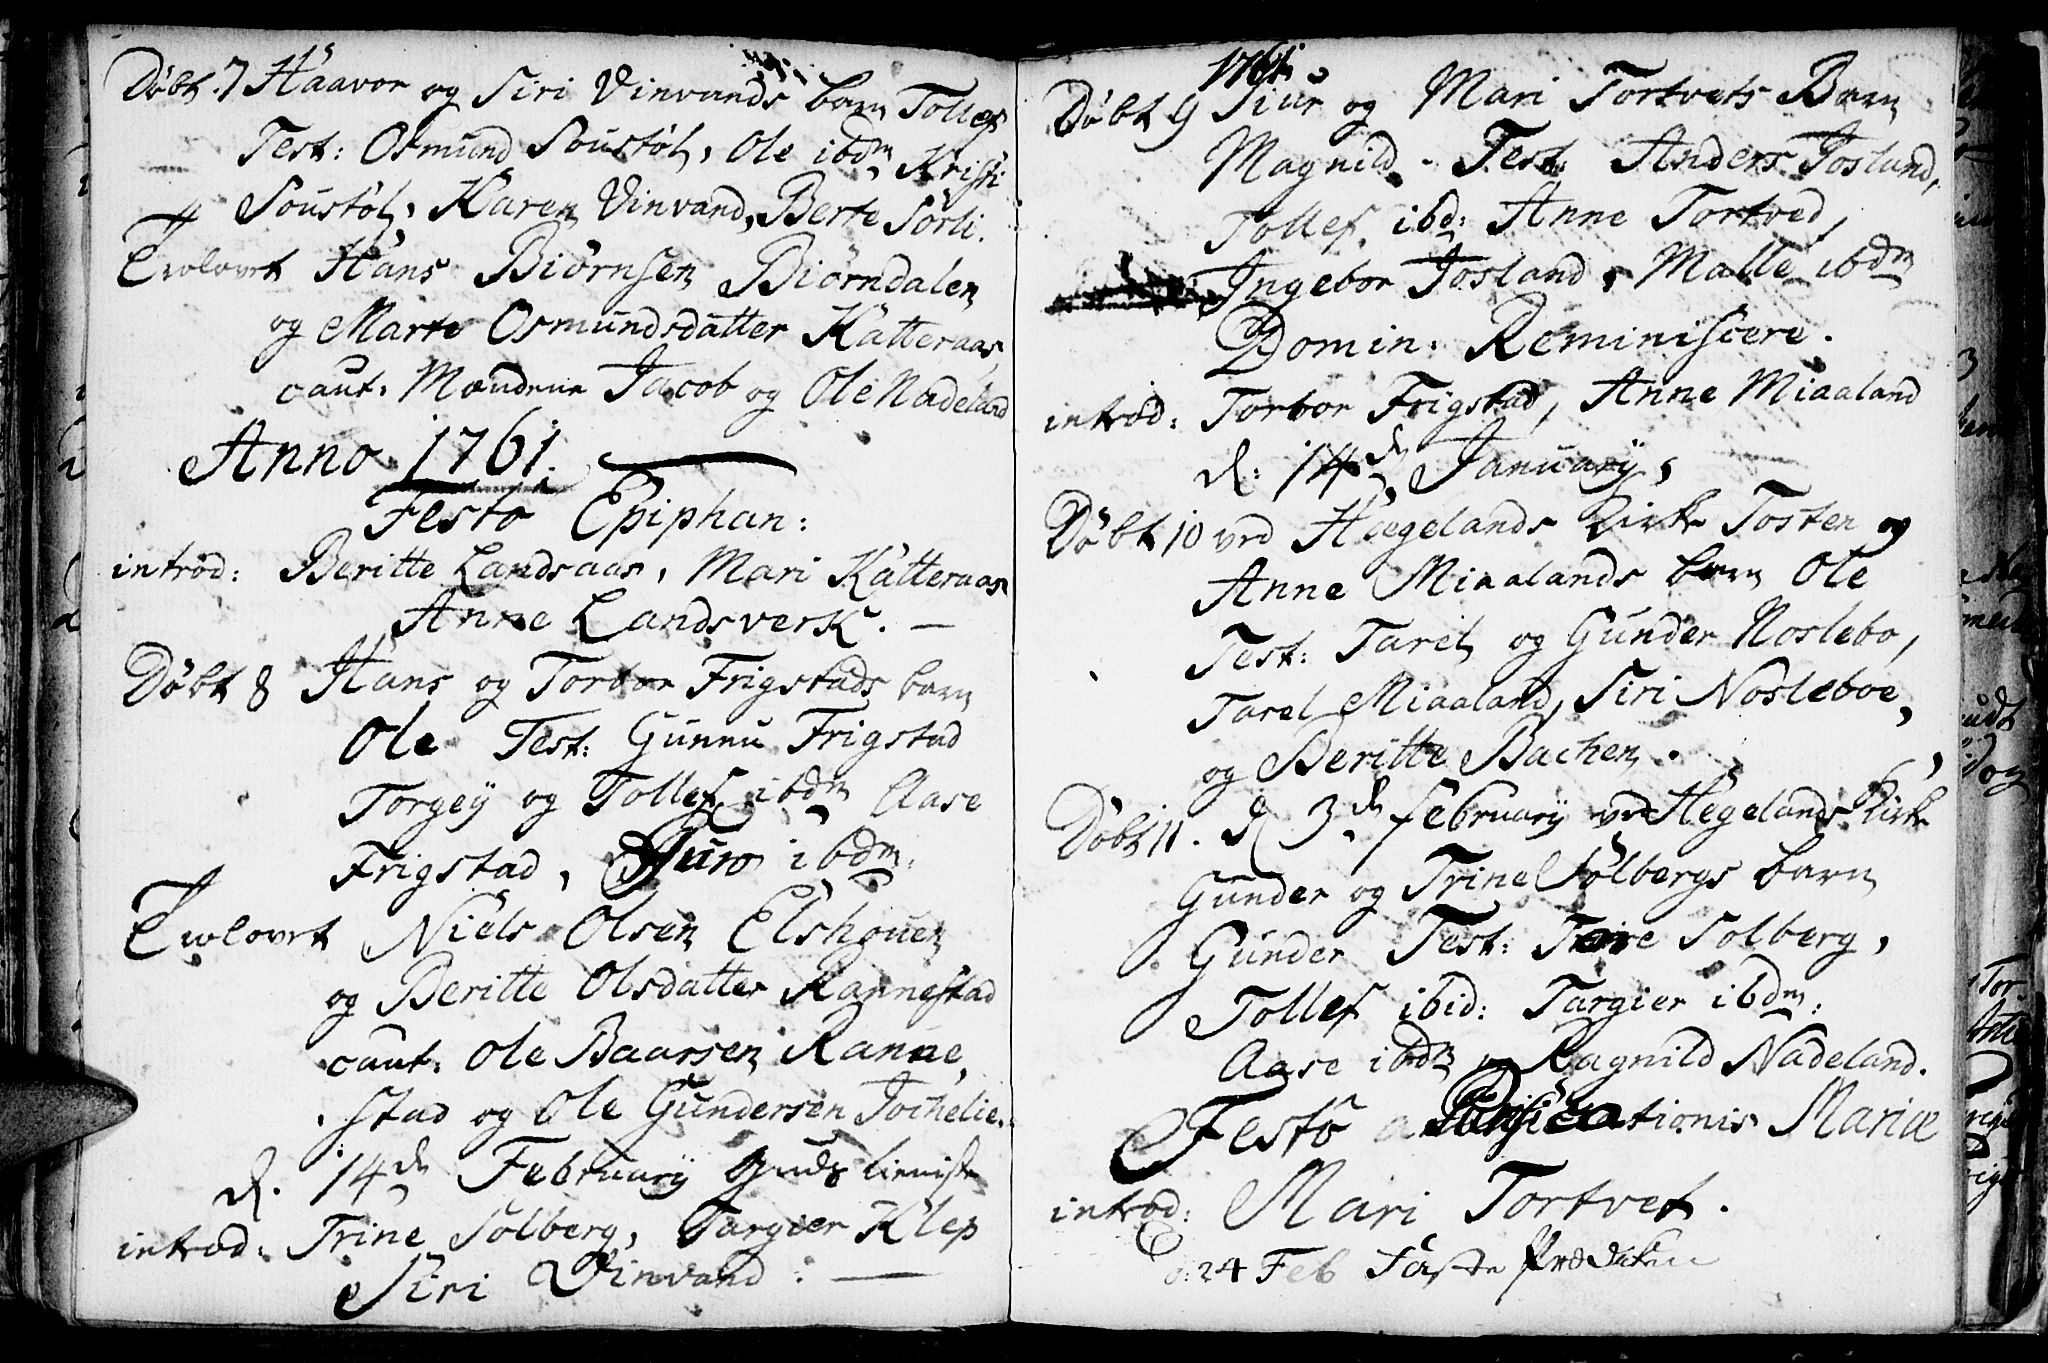 Døbt 7 Haavor og Siri Vinvands barn Tollef
Test: Osmund Soustøl, Ole ibdm Kristi
Soustøl, Karen Vinvand, Berte Sørli.
Trolovet Hans Biørnsen Biørndalen
og Marte Osmundsdatter Katteraas
caut: Mændene Jacob og Ole Nadeland
Anno 1761.
Festo Epiphan:
introd: Beritte Landsaas, Mari Katteraas
Anne Landsverk. —
Døbt 8 Hans og Torbor Frigstads barn
Ole Test: Gunnu Frigstad
Torgey og Tollef ibdm Aase
Frigstad, Guro ibdm:
Trolovet Niels Olsen Elshouen
og Beritte Olsdatter Rannestad
caut: Ole Baarsen Ranne,
stad og Ole Gundersen Jochelie.
d. 14de February Guds tieniste
introd: Trine Solberg, Targier Klep
Siri Vinvand: —
1761.
Døbt 9 Siur og Mari Tortvets Barn
Magnild. Test: Anders Josland,
Tollef ibd: Anne Tortved,
Ingebor Josland, Malle ibdm
Domin: Reminiscere.
introd: Torbor Frigstad, Anne Miaaland
d: 14de January,
Døbt 10 ved Hægelands Kirke Tosten og
Anne Miaalands barn Ole
Test: Tarel og Gunder Noslebo,
Tarel Miaaland, Siri Nosleboe,
og Beritte Bachen.
Døbt 11. d 3de February ved Hegelands Kirke
Gunder og Trine Solbergs barn
Gunder Test: Tore Solberg,
Tollef ibid: Targier ibdm:
Aase ibdm og Ragnild Nadeland.
Festo Purificationis Mariæ
introd: Mari Tortvet.
d: 24 Feb Faste Prædiken